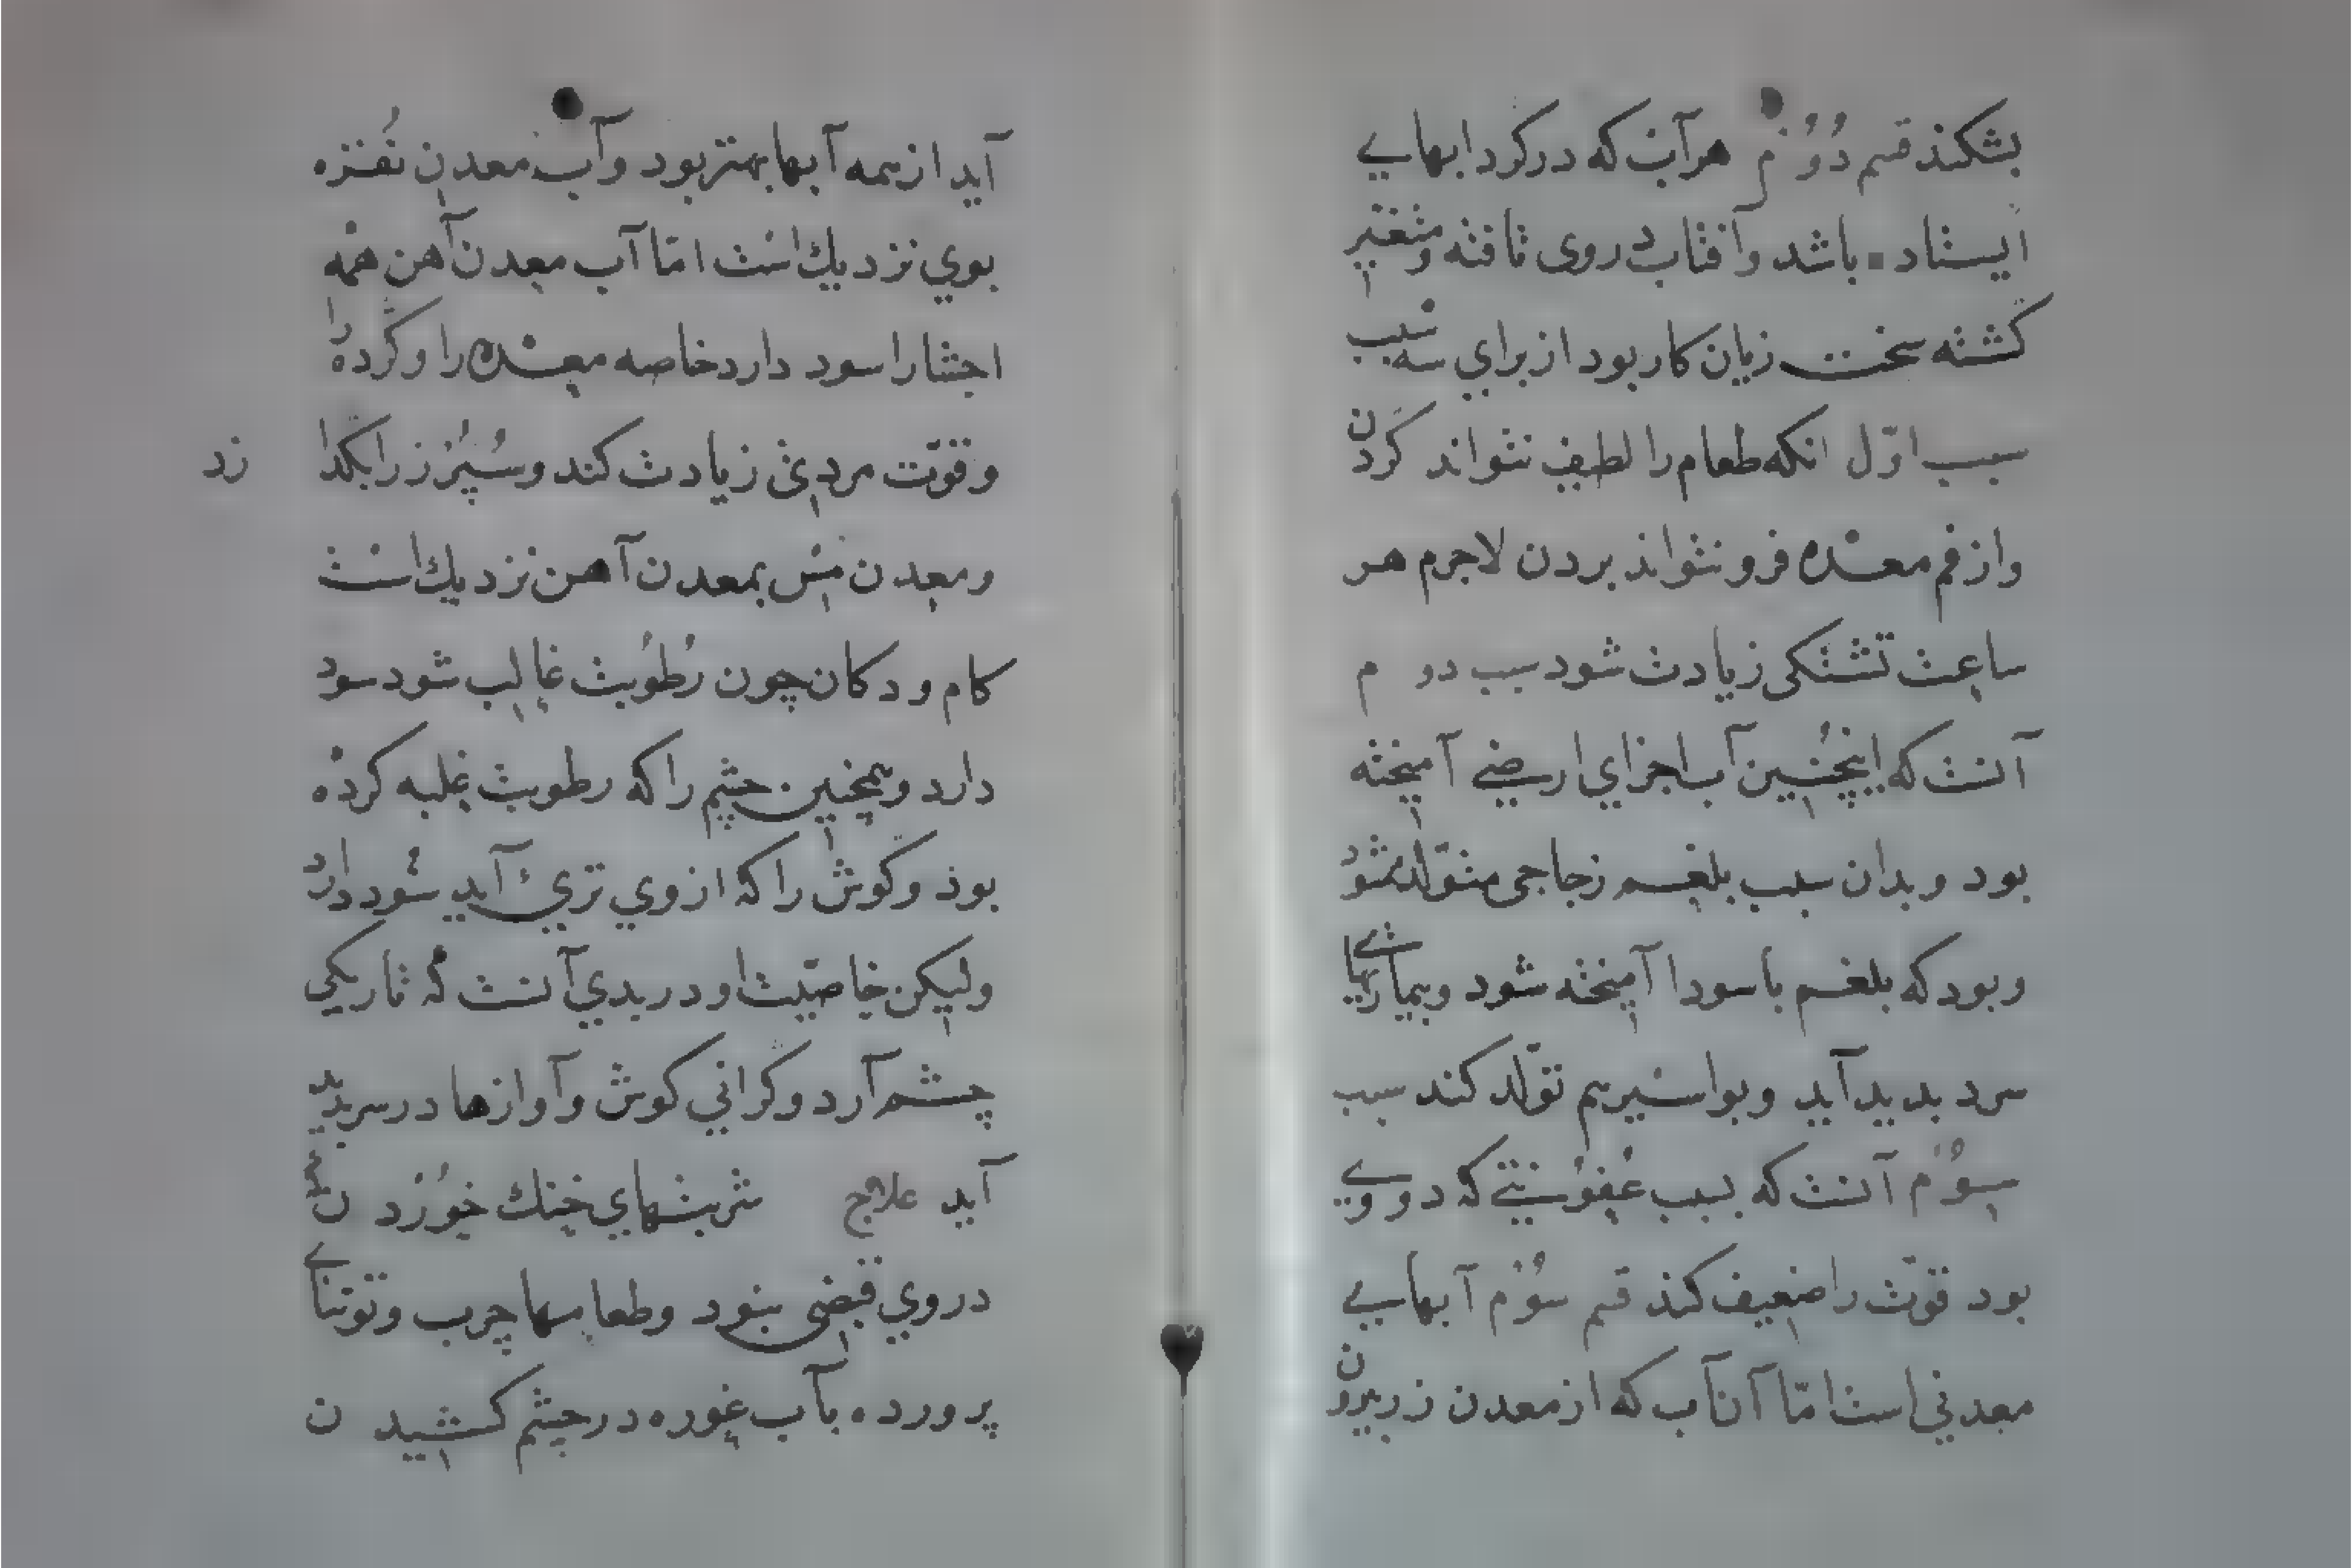 بشکند قسم دُوُم هر آب که در کردابهایی
ایستاده باشد وآفتاب در وی تافته و متغیّر
کشته سخت زیان کار بود از برای سه سبب
سبب اوّل انکه طعام را لطیف نتواند کردن
واز فم معده فرو نتواند بردن لاجرم هر
ساعت تشنکی زیادت شود سبب دوم
آنست که اینچنین آب اجزای ارضی آمیخته
بود و بدان سبب بلغم زجاجی متولّد شود
وبود که بلغم با سودا آمیخته شود وبیماریهای
سرد بدید آید وبواسیر هم تولّد کند سبب
سوُم آنست که بسبب عُفوُنتی که در وی
بود قوّت را ضعیف کند قسم سوُم آبهایی
معدنی است امّا آن آب که از معدن زر بیرون
آید از همه آبها بهتر بود وآب معدن نُقره
بوی نزدیك است امّا آب معدن آهن همه
احشا را سود دارد خاصه معده را و کرده را
وقوّت مردی زیادت کند وسُپُرز را بکدازد
ومعدن مس بمعدن آهن نزدیك است
کام و دکان چون رُطُوبت غالب شود سود
دارد وهمچنین چشم را که رطوبت غلبه کرده
بوذ وکوش را که از وی تری آید سود دارد
ولیکن خاصّیت او در بدی آنست که تاریکی
چشم آرد وکرانی کوش وآوازها در سر بدید
آید علاج شربتهای خنك خوُرد ن
در وی قبضی بنود وطعامها چرب وتوتیای
پرورده بآب غوره در چشم کشید ن